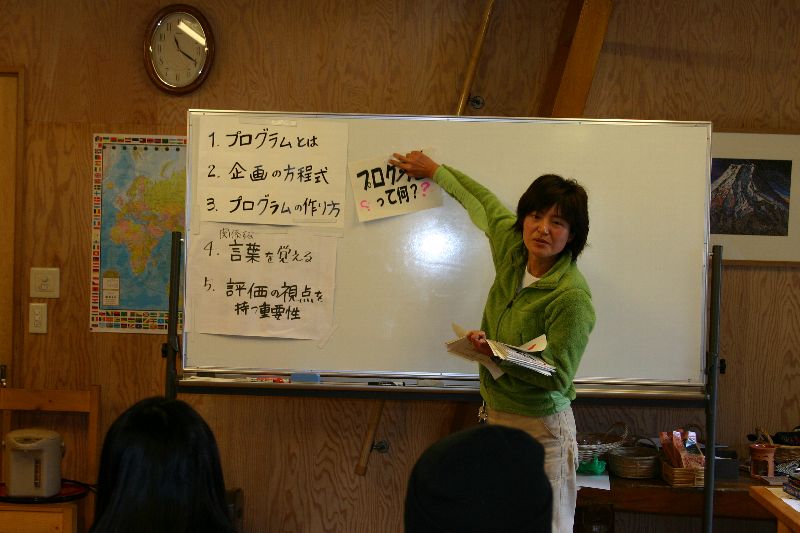 1. プログラムとは
2. 企画の方程式
3. プログラムの作り方
4. 言葉を覚える
5. 評価の視点を
持つ重要性
プログ
って何??